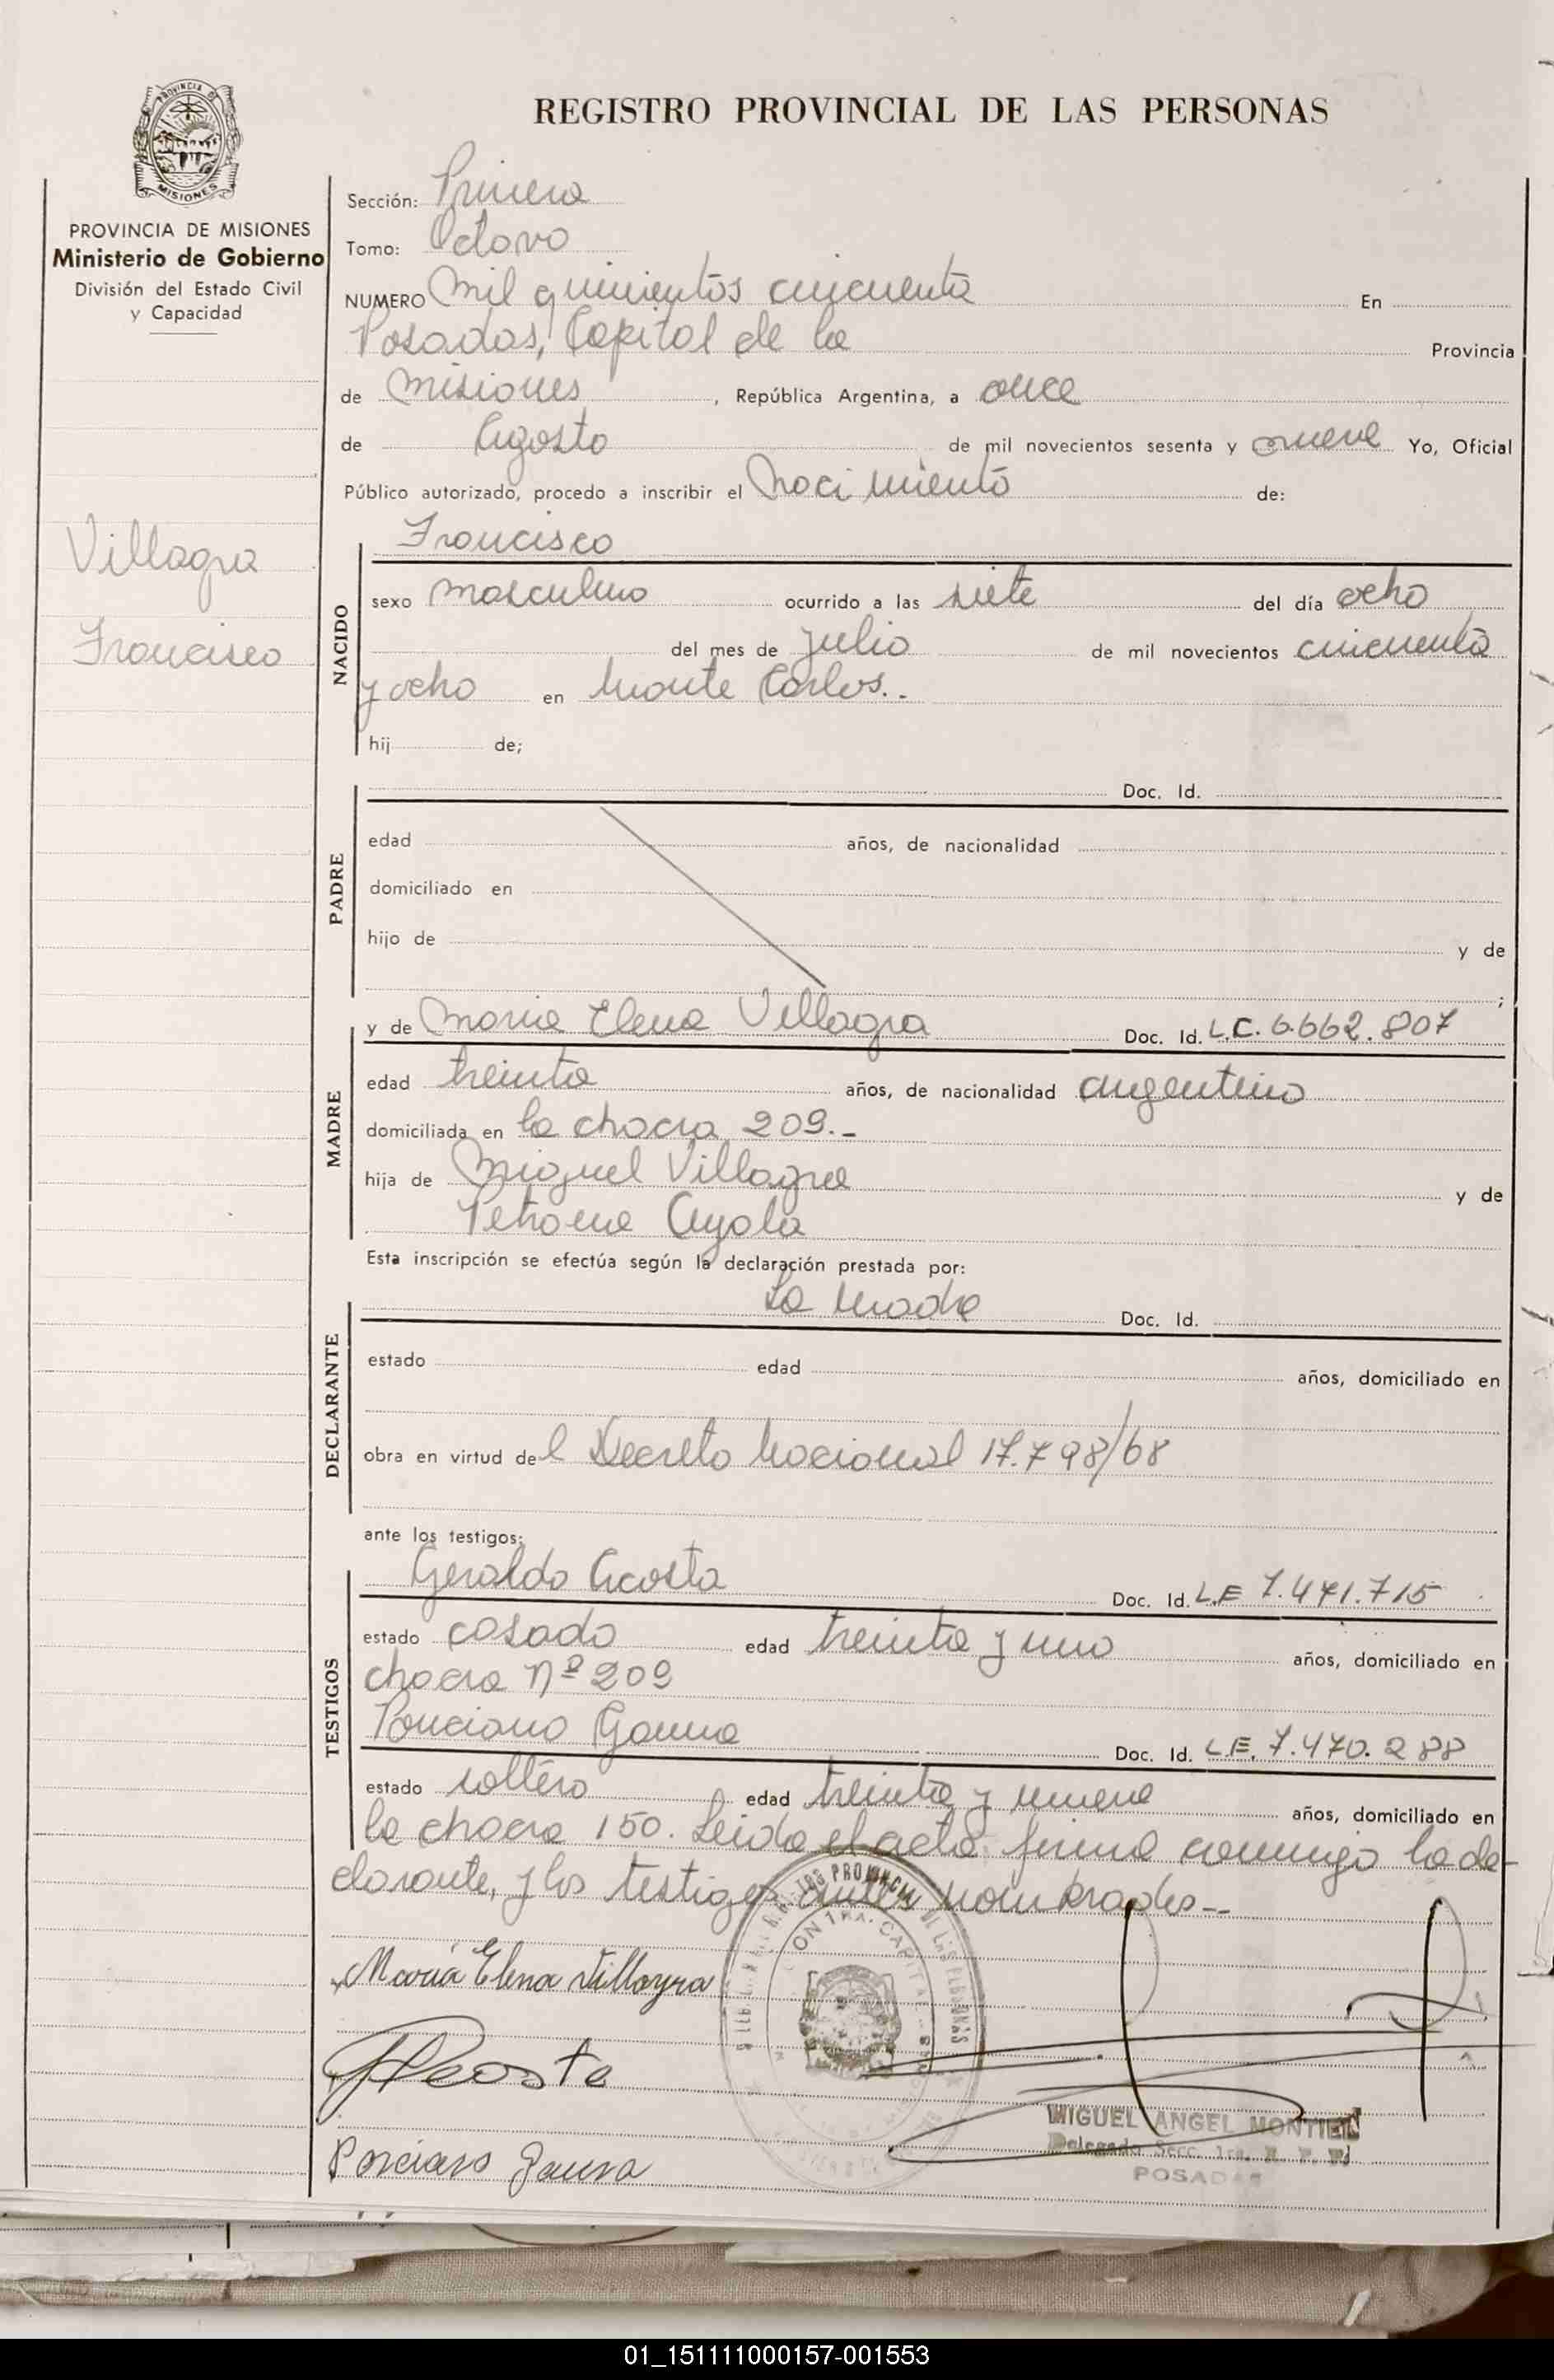 PROVINCIA DE
MISIONES
REGISTRO PROVINCIAL DE LAS PERSONAS
PROVINCIA DE MISIONES
Ministerio de Gobierno
División del Estado Civil
y Capacidad
Villagra
Francisco
Sección: Primera
Tomo: Octavo
NUMERO Mil quinientos cincuenta En
Posadas, Capital de la Provincia
de Misiones, República Argentina, a once
de Agosto de mil novecientos sesenta y nueve Yo, Oficial
Público autorizado, procedo a inscribir el Nacimiento de:
NACIDO
Francisco
sexo masculino ocurrido a las siete del día ocho
del mes de julio de mil novecientos cincuenta
y ocho en Monte Carlos.-
hij de;
PADRE
Doc. Id.
edad años, de nacionalidad
domiciliado en
hijo de y de
;
MADRE
y de Maria Elena Villagra Doc. Id. L.C. 6.662.807
edad treinta años, de nacionalidad argentino
domiciliada en la chacra 209.-
hija de Miguel Villagra y de
Petrona Ayala
Esta inscripción se efectúa según la declaración prestada por:
DECLARANTE
La Madre Doc. Id.
estado edad años, domiciliado en
obra en virtud del Decreto Nacional 17.798/68
ante los testigos:
TESTIGOS
Geraldo Acosta Doc. Id. L.E 7.471.715
estado casado edad treinta y uno años, domiciliado en
chacra Nº 209
Ponciano Gauna Doc. Id. L.E. 7.470.288
estado soltero edad treinta y nueve años, domiciliado en
la chacra 150. Leida el acta firma conmigo la de-
clarante, y los testigos antes nombrados.--
María Elena Villagra
GAcosta
Ponciano Gauna
MIGUEL ANGEL MONTIEL
Delegado Secc. 1ra. R. P. P.
POSADAS
01_151111000157-001553